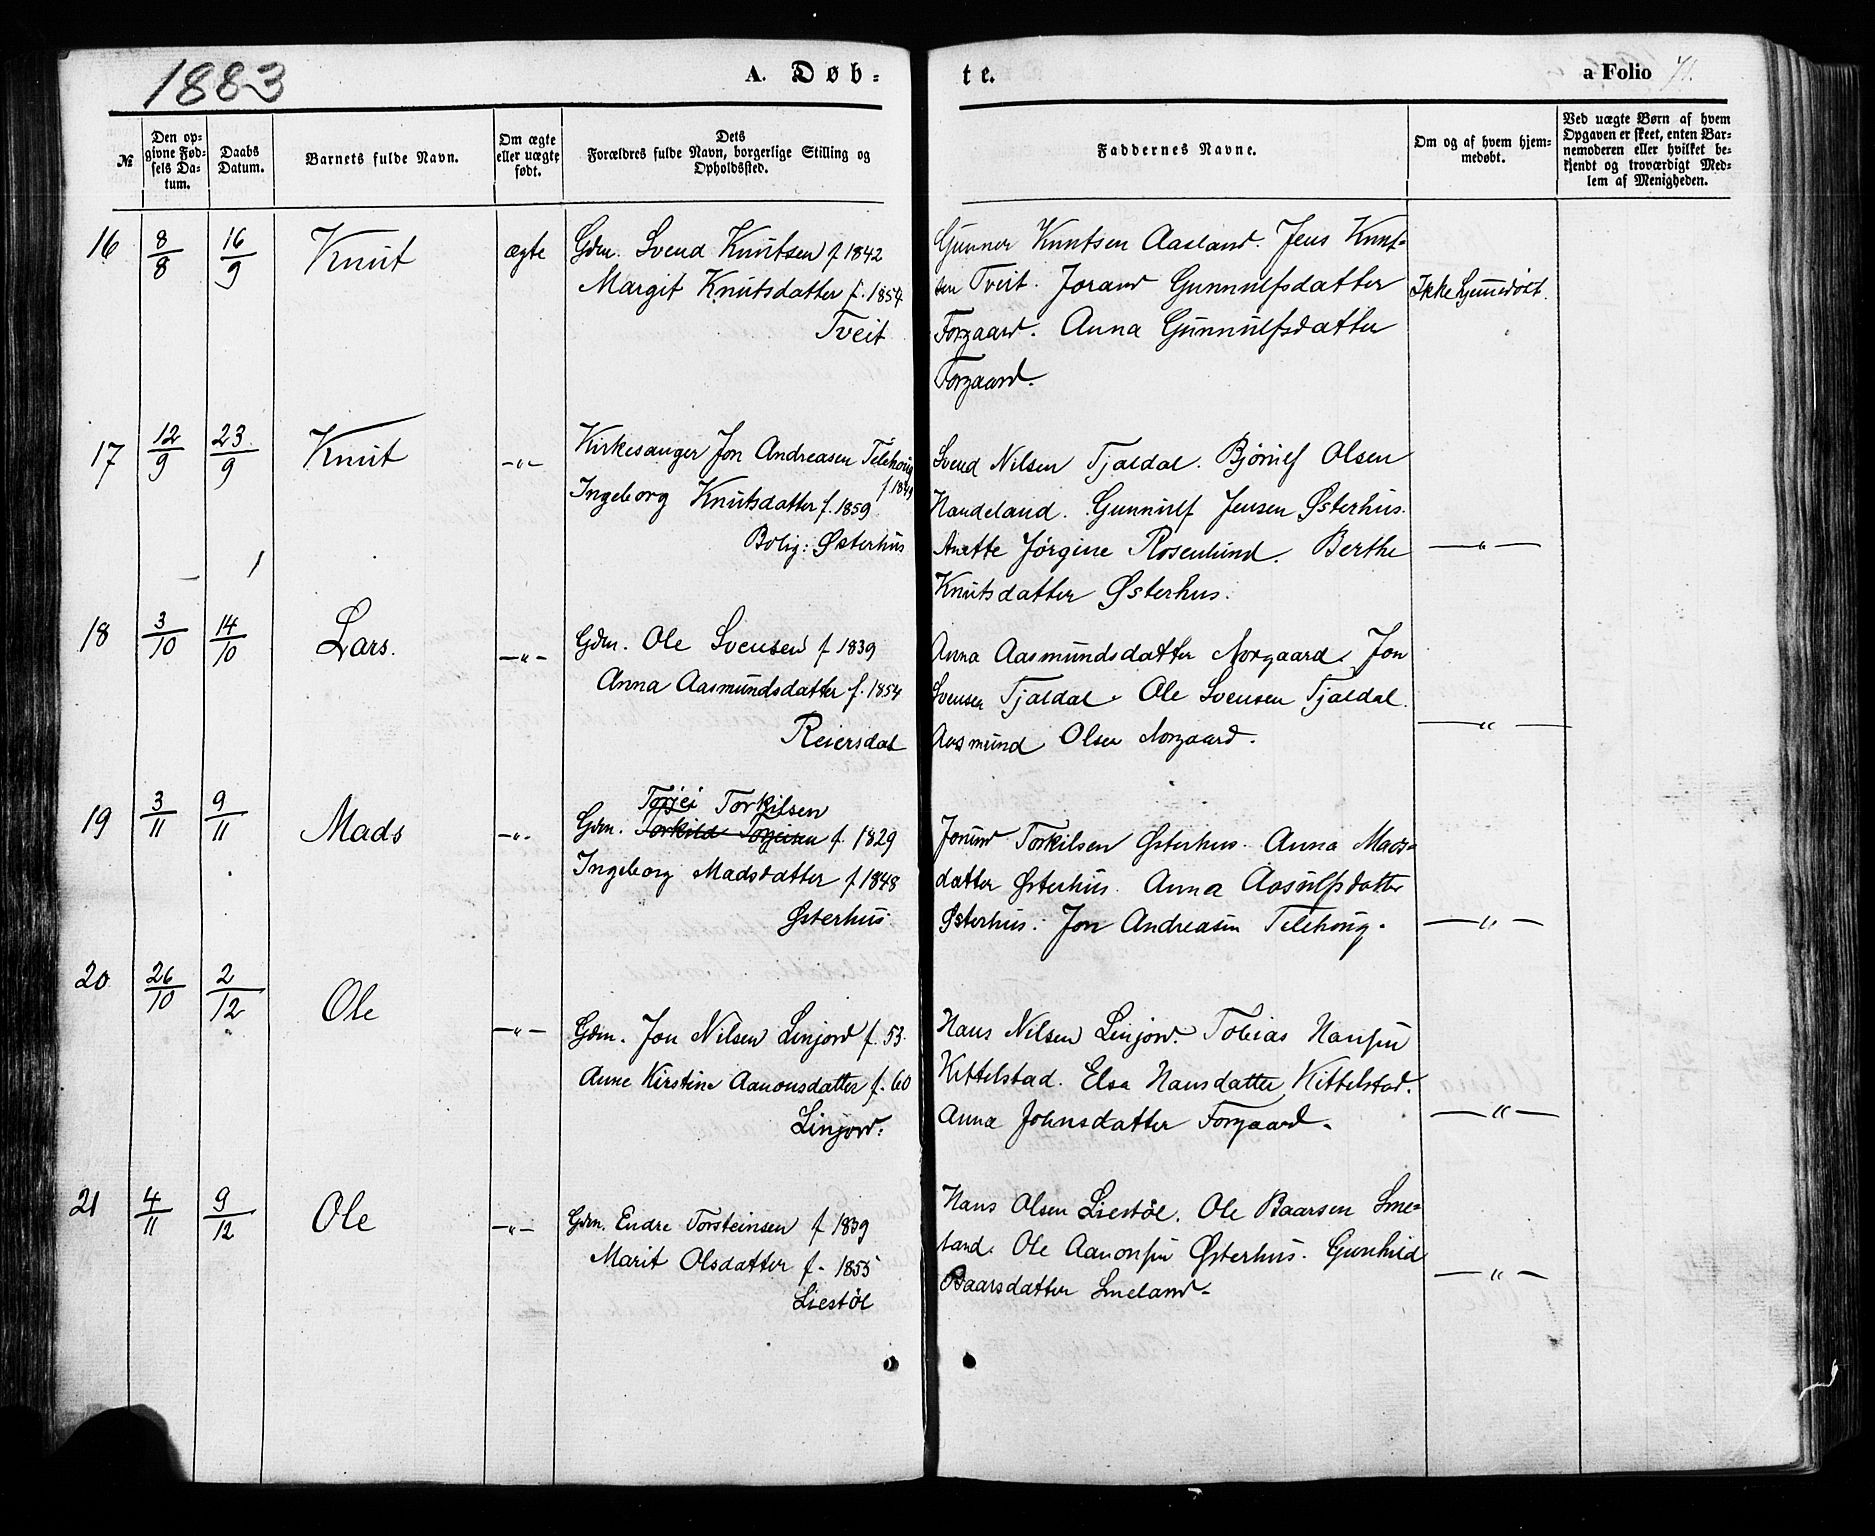 1883
A. Døb-
te.
a Folio 71.
№
Den op-
givne Fød-
sels Da-
tum.
Daabs
Datum.
Barnets fulde Navn.
Om ægte
eller uægte
født.
Dets
Forældres fulde Navn, borgerlige Stilling og
Opholdssted.
Faddernes Navne.
Om og af hvem hjem-
medøbt.
Ved uægte Børn af hvem
Opgaven er skeet, enten Bar-
nemoderen eller hvilket be-
kjendt og troværdigt Med-
lem af Menigheden.
16 8/8 16/9 Knut ægte
Gdm. Svend Knutsen f 1842
Margit Knutsdatter f. 1854
Tveit
Gunner Knutsen Aasland. Jens Knut-
sen Tveit. Jorand Gunnulfsdatter
Forgaard. Anna Gunnulfsdatter
Forgaard.
Ikke hjemmedøbt.
17 12/9 23/9 Knut -"-
Kirkesanger Jon Andreasen Telehoug
f. 1849
Ingeborg Knutsdatter f. 1859
Bolig: Østerhus
Svend Nilsen Tjaldal. Bjørnulf Olsen
Haudeland. Gunnulf Jensen Østerhus.
Anette Jørgine Rosenlund. Berthe
Knutsdatter Østerhus.
-"-
18 3/10 14/10 Lars. -"-
Gdm. Ole Svensen f 1839
Anna Aasmundsdatter f. 1854
Reiersdal
Anna Aasmundsdatter Norgaard. Jon
Svensen Tjaldal. Ole Svensen Tjaldal.
Aasmund Olsen Norgaard.
-"-
19 3/11 9/11 Mads -"-
Torjei Torkilsen
Gdm. Torkild Torjeisen f. 1829
Ingeborg Madsdatter f 1848
Østerhus.
Jorund Torkilsen Østerhus. Anna Mads-
datter Østerhus. Anna Aasulfsdatter
Østerhus. Jon Andreasen Telehoug.
-"-
20 26/10 2/12 Ole -"-
Gdm. Jon Nilsen Linjord f. 53.
Anne Kirstine Aanonsdatter f. 60
Linjord.
Hans Nilsen Linjord. Tobias Hansen
Kittelstad. Elsa Hansdatter Kittelstad.
Anna Johnsdatter Forgaard.
-"-
21 4/11 9/12 Ole -"-
Gdm. Endre Torsteinsen f 1839
Marit Olsdatter f. 1855
Liestøl
Hans Olsen Liestøl. Ole Baarsen Sme-
land. Ole Aanonsen Østerhus. Gunhild
Baarsdatter Smeland.
-"-